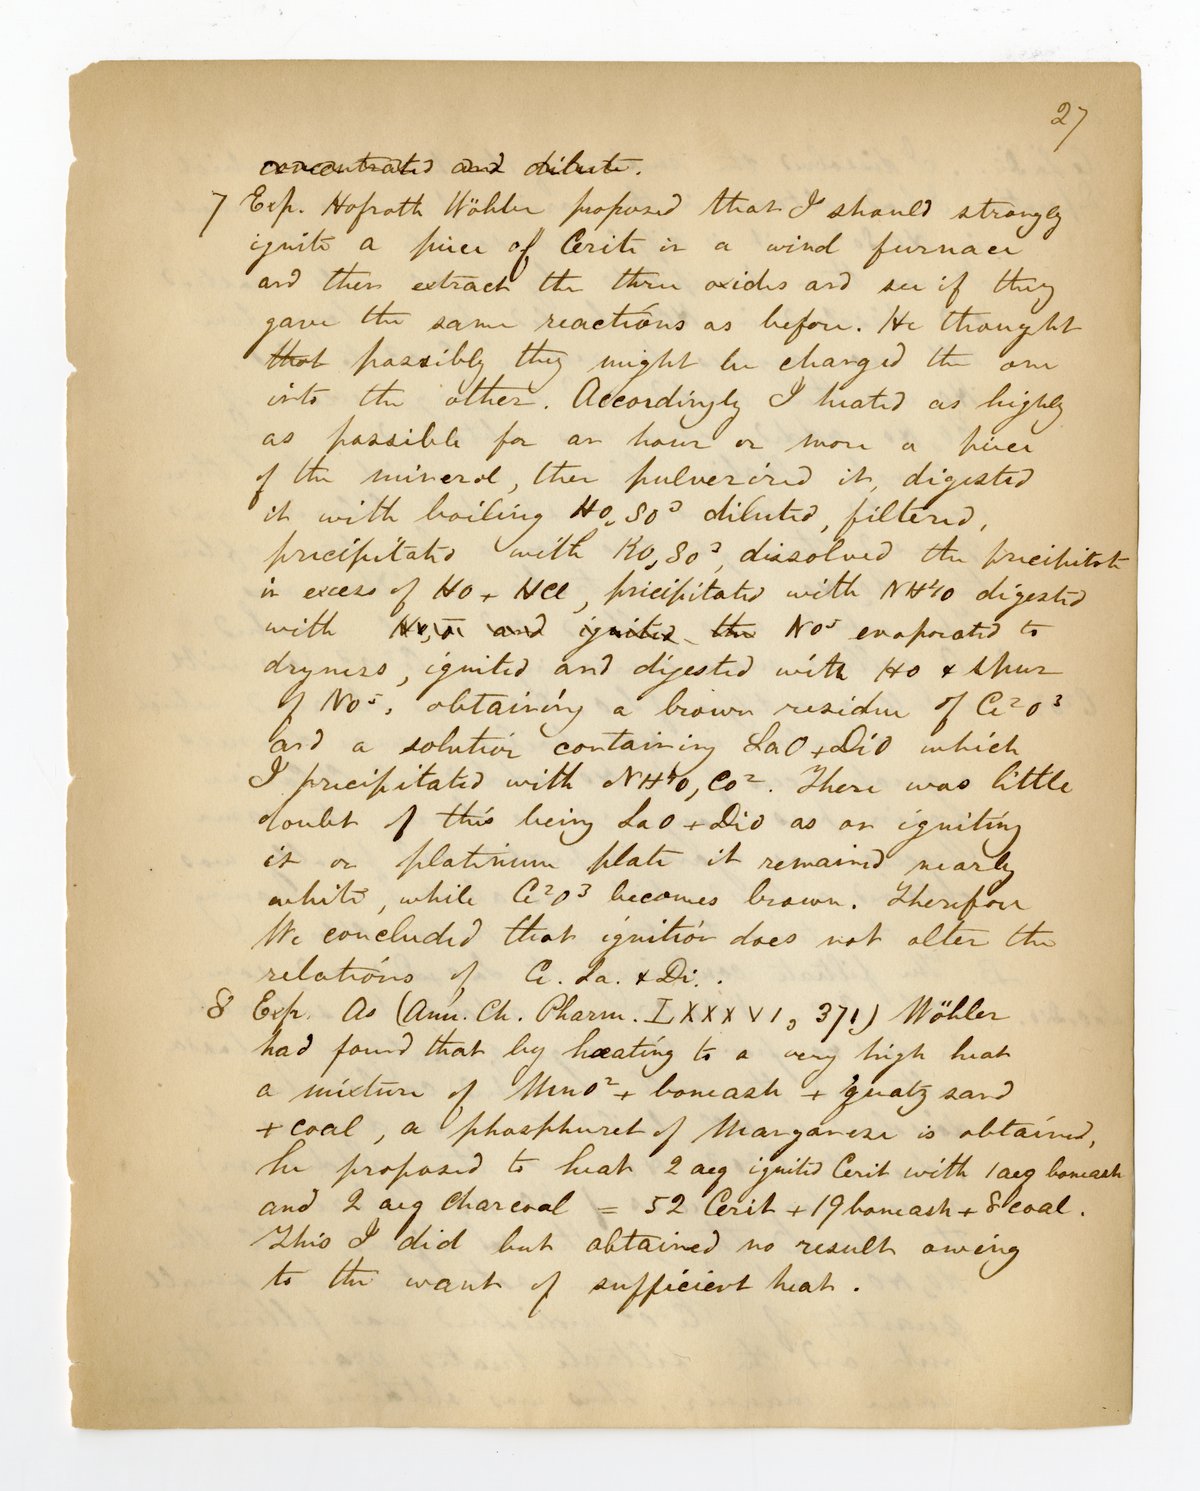 27
concentrated and dilute.
7 Exp. Hofrath Wöhler proposed that I should strongly
ignite a piece of Cerite in a wind furnace
and then extract the three oxides and see if they
gave the same reactions as before. He thought
that possibly they might be changed the one
into the other. Accordingly I heated as highly
as possible for an hour or more a piece
of the mineral, then pulverized it, digested
it with boiling HO, SO³ diluted, filtered,
precipitated with KO, SO³, dissolved the precipitate
in excess of HO + HCl, precipitated with NH⁴O digested
with and ignited the NO⁵ evaporated to
dryness, ignited and digested with HO + spur
of NO⁵, obtaining a brown residue of Ce²O³
and a solution containing LaO + DiO which
I precipitated with NH⁴O, CO². There was little
doubt of this being LaO + DiO as on igniting
it on platinum plate it remained nearly
white, while Ce²O³ becomes brown. Therefore
We concluded that ignition does not alter the
relations of Ce. La. & Di.
8 Exp. As (Ann. Ch. Pharm. LXXXVI, 371) Wöhler
had found that by heating to a very high heat
a mixture of MnO² + boneash + quatz sand
+ coal, a phosphuret of Manganese is obtained,
he proposed to heat 2 aeq ignited Cerit with 1 aeq boneash
and 2 aeq charcoal = 52 Cerit + 19 boneash + 8 coal.
This I did but obtained no result owing
to the want of sufficient heat.